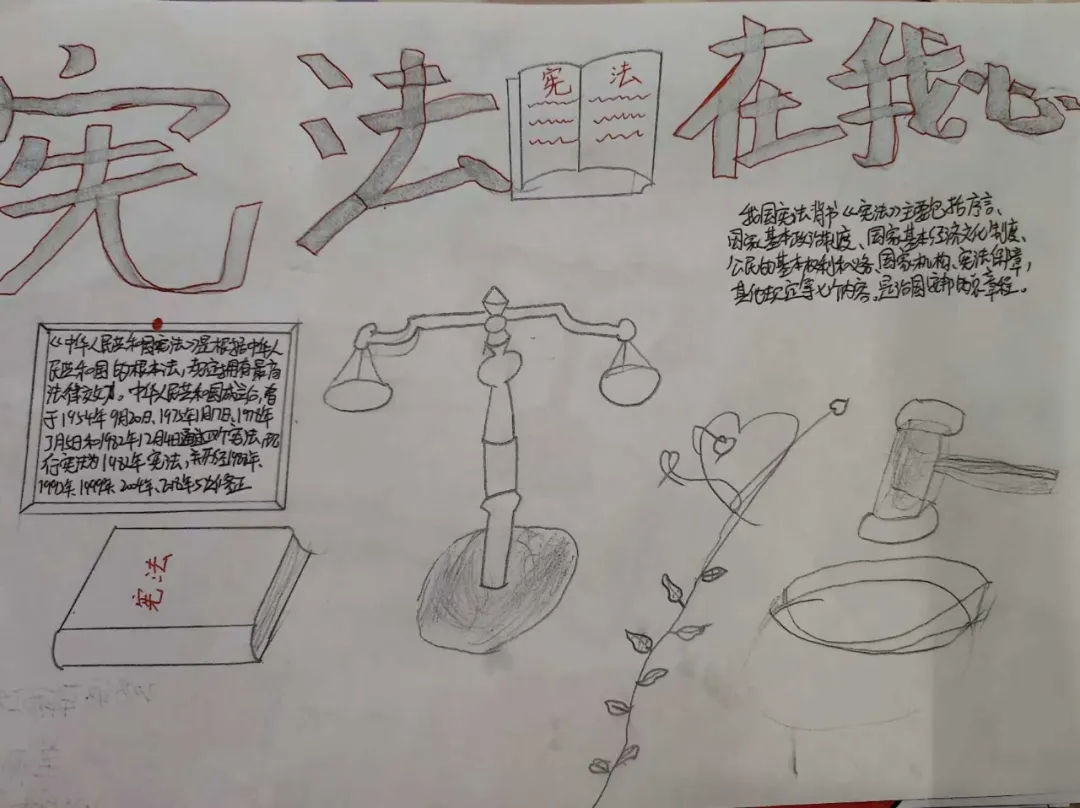 宪法在我心
宪法
我国宪法背书《宪法》主要包括序言、
国家基本政治制度、国家基本经济文化制度、
公民的基本权利和义务、国家机构、宪法保障,
其他规定等七个内容。是治国安邦的总章程。
《中华人民共和国宪法》是根据中华人
民共和国的根本法,规定拥有最高
法律效力。中华人民共和国成立后,曾
于1954年9月20日、1975年1月17日、1978年
3月5日和1982年12月4日通过四个宪法,现
行宪法为1982年宪法,并历经1988年、
1993年、1999年、2004年、2018年5次修正
宪法